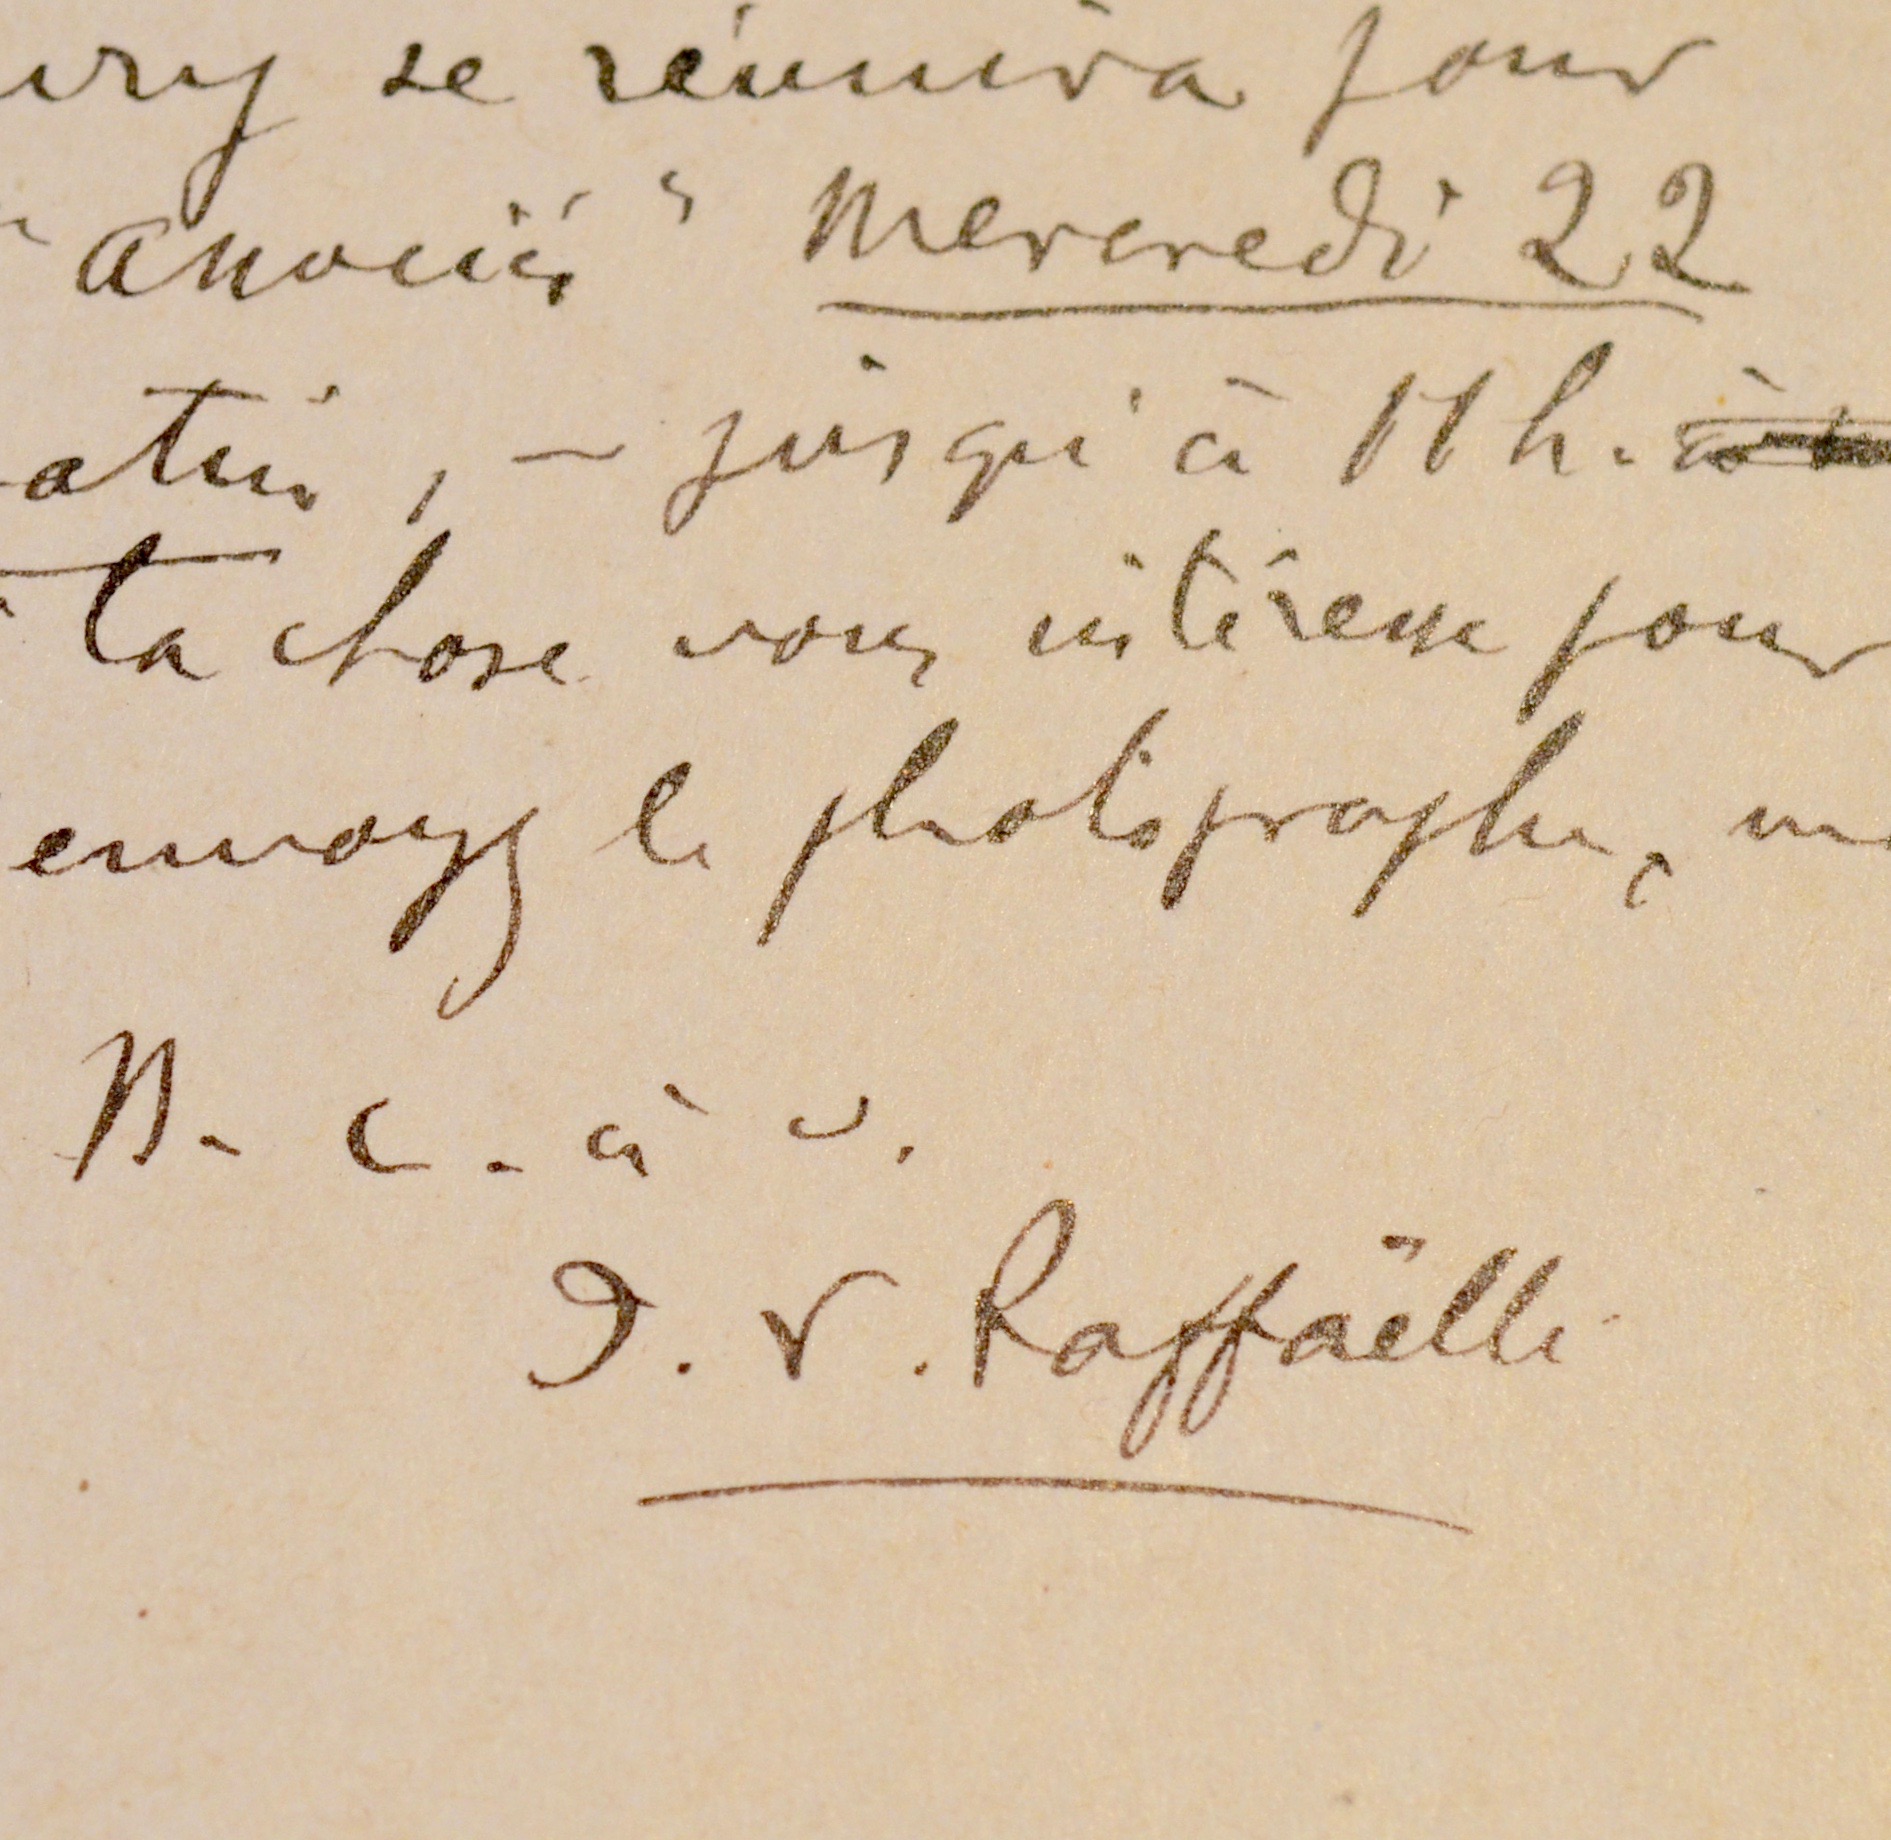 ury se réunira pour
" Associés " Mercredi 22
atin, — jusqu'à 11 h. à
la chose vous intéresse pour
envoyez le photographe,
B. c. à v.
J. F. Raffaëlli